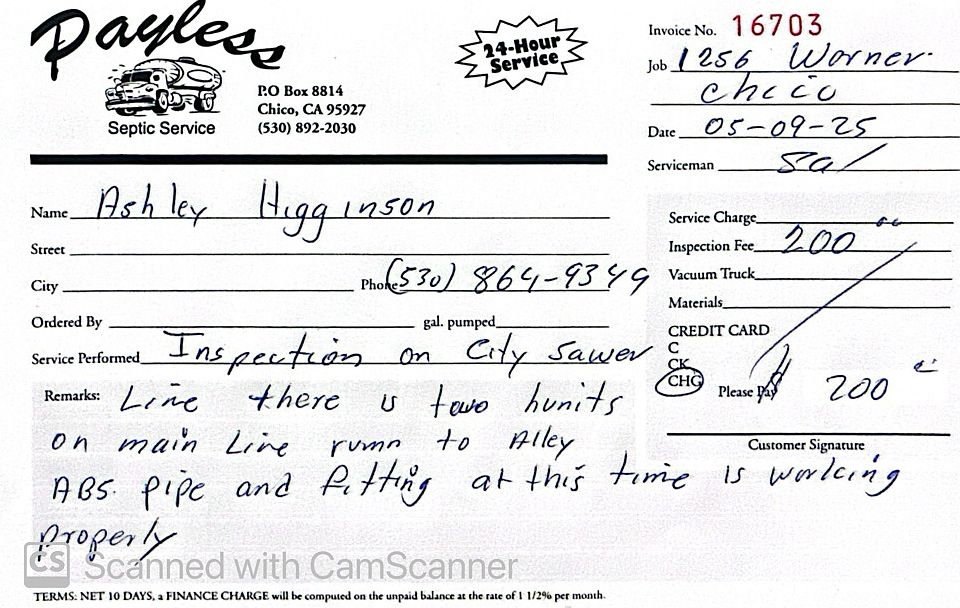 Payless
Septic Service
P.O Box 8814
Chico, CA 95927
(530) 892-2030
24-Hour
Service
Invoice No. 16703
Job 1256 Warner
Chico
Date 05-09-25
Serviceman Sal
Name Ashley Higginson
Street
City
Phone (530) 864-9349
Ordered By
gal. pumped
Service Performed Inspection on City Sawer
Remarks: Line there is two hunits
on main Line rumn to Alley
ABS. pipe and fitting at this time is working
properly
Service Charge
Inspection Fee 200 00
Vacuum Truck
Materials
CREDIT CARD
C
CK
CHG
Please Pay $ 200
Customer Signature
CS Scanned with CamScanner
TERMS: NET 10 DAYS, a FINANCE CHARGE will be computed on the unpaid balance at the rate of 1 1/2% per month.